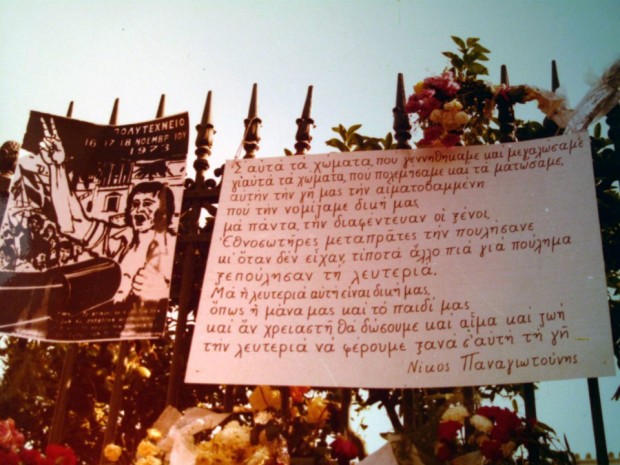 ΠΟΛΥΤΕΧΝΕΙΟ
16 - 17 - 18 ΝΟΕΜΒΡΙΟΥ
1973
Σ' αὐτά τά χώματα, που γεννηθήκαμε και μεγαλώσαμε
γι' αυτά τά χώματα, που πολεμήσαμε και τα ματώσαμε,
αυτήν την γή μας τήν αἱματοβαμμένη
πού τήν νομίζαμε δική μας
μά πάντα τήν διαφέντευαν οἱ ξένοι
Ἐθνοσωτῆρες μεταπράτες τήν πουλήσανε
μι' ὅταν δέν εἶχαν, τίποτά ἄλλο πιά γιά πούλημα
ξεπούλησαν τή λευτεριά.
Μά ἡ λευτεριά αὐτή εἶναι δική μας,
ὅπως ἡ μάνα μας και τό παιδί μας
καί ἄν χρειαστῆ θά δώσουμε καί αἷμα καί ζωή
τήν λευτεριά νά φέρουμε ξανά σ' αὐτή τή γῆ
Νίκος Παναγιωτούνης